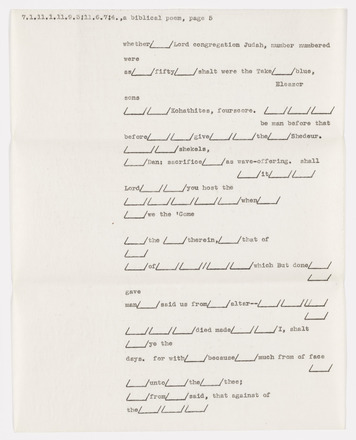 7.1.11.1.11.9.3!11.6.7!4., a biblical poem, page 5
whether/___/Lord congregation Judah, number numbered
were
as/___/fifty/___/shalt were the Take/___/blue,
Eleazar
sons
/___//___/Kohathites, fourscore. /___//___//___/
be man before that
before/___//___/give/___//___/the/___/Shedeur.
/___//___/shekels,
/___/Dan; sacrifice/___/as wave-offering. shall
/___/it/___//___/
Lord/___//___/you host the
/___//___//___//___//___/when/___/
/___/we the 'Come
/___/the /___/therein,/___/that of
/___/
/___/of/___//___//___//___/which But done/___/
/___/
gave
man/___/said us from/___/altar--/___//___//___/
/___/
/___//___//___/died made/___//___/I, shalt
/___/ye the
days. for with/___/because/___/much from of face
/___/
/___/unto/___/the/___/thee;
/___/from/___/said, that against of
the/___//___//___/